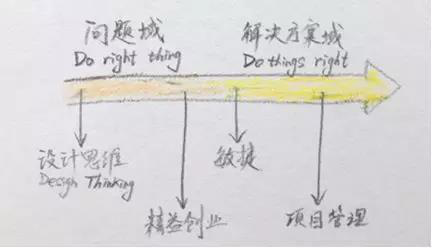 问题域
Do right thing
解决方案域
Do things right
设计思维
Design Thinking
精益创业
敏捷
项目管理